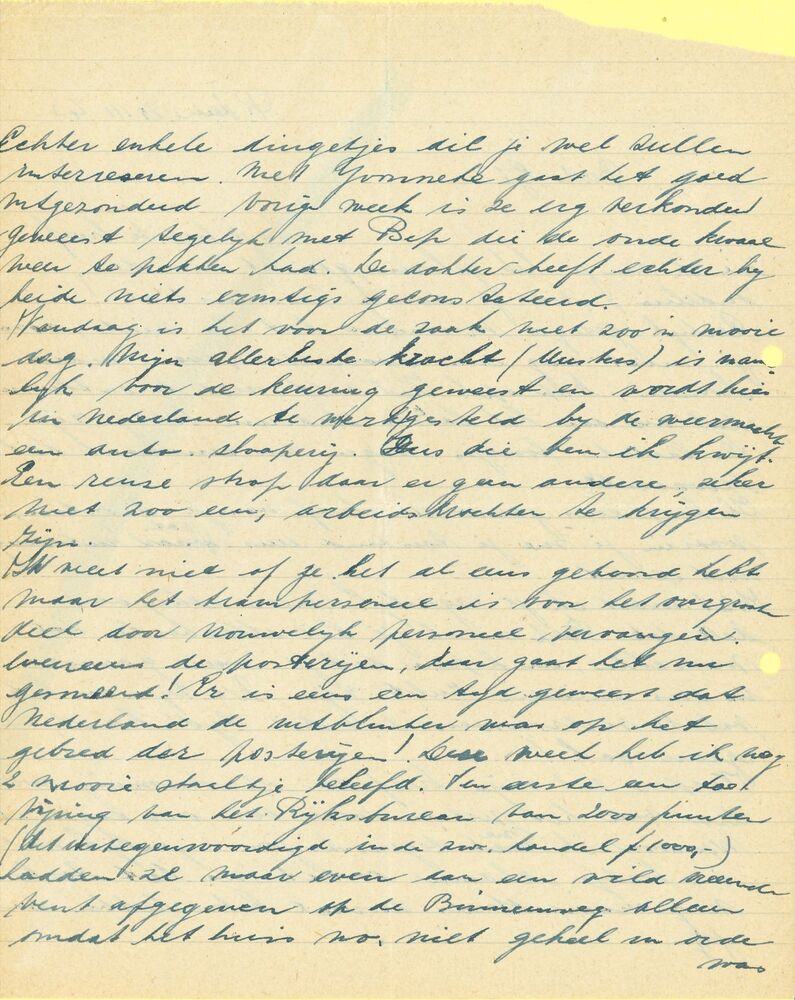 Echter enkele dingetjes die je wel zullen
interreseren. Met Yvonneke gaat het goed
uitgezonderd vorig week is ze erg verkouden
geweest tegelijk met Bep die de oude kwaal
weer te pakken had. De dokter heeft echter by
beide niets ernstigs geconstateerd.
Vandaag is het voor de zaak niet zoo'n mooie
dag. Mijn allerbeste kracht () is name-
lyk voor de keuring geweest en wordt hier
in nederland te werkgesteld by de weermacht
een auto slooperij. Dus die ben ik kwijt.
Een reuze strop daar er geen andere, zeker
niet zoo een, arbeidskrachten te krijgen
zijn.
Ik weet niet of je het al eens gehoord hebt
maar het trampersoneel is voor het overgroote
deel door vrouwelijk personeel vervangen.
Eveneens de posterijen, daar gaat het nu
gesmeerd! Er is eens een tyd geweest dat
Nederland de uitblinker was op het
gebied der posterijen! Deze week heb ik nog
2 mooie staaltje beleefd. Ten eerste een toe-
wijzing van het Rijksbureau van 2000 punten
(dit vertegenwoordigd in de zw. handel ƒ 1000,-)
hadden ze maar even aan een wild vreemde
vent afgegeven op de Binnenweg alleen
omdat het huis no. niet geheel in orde
was